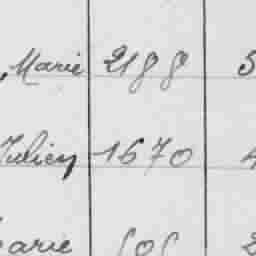 , Marie 2188 5
Julien 1670 4
Marie 505 2